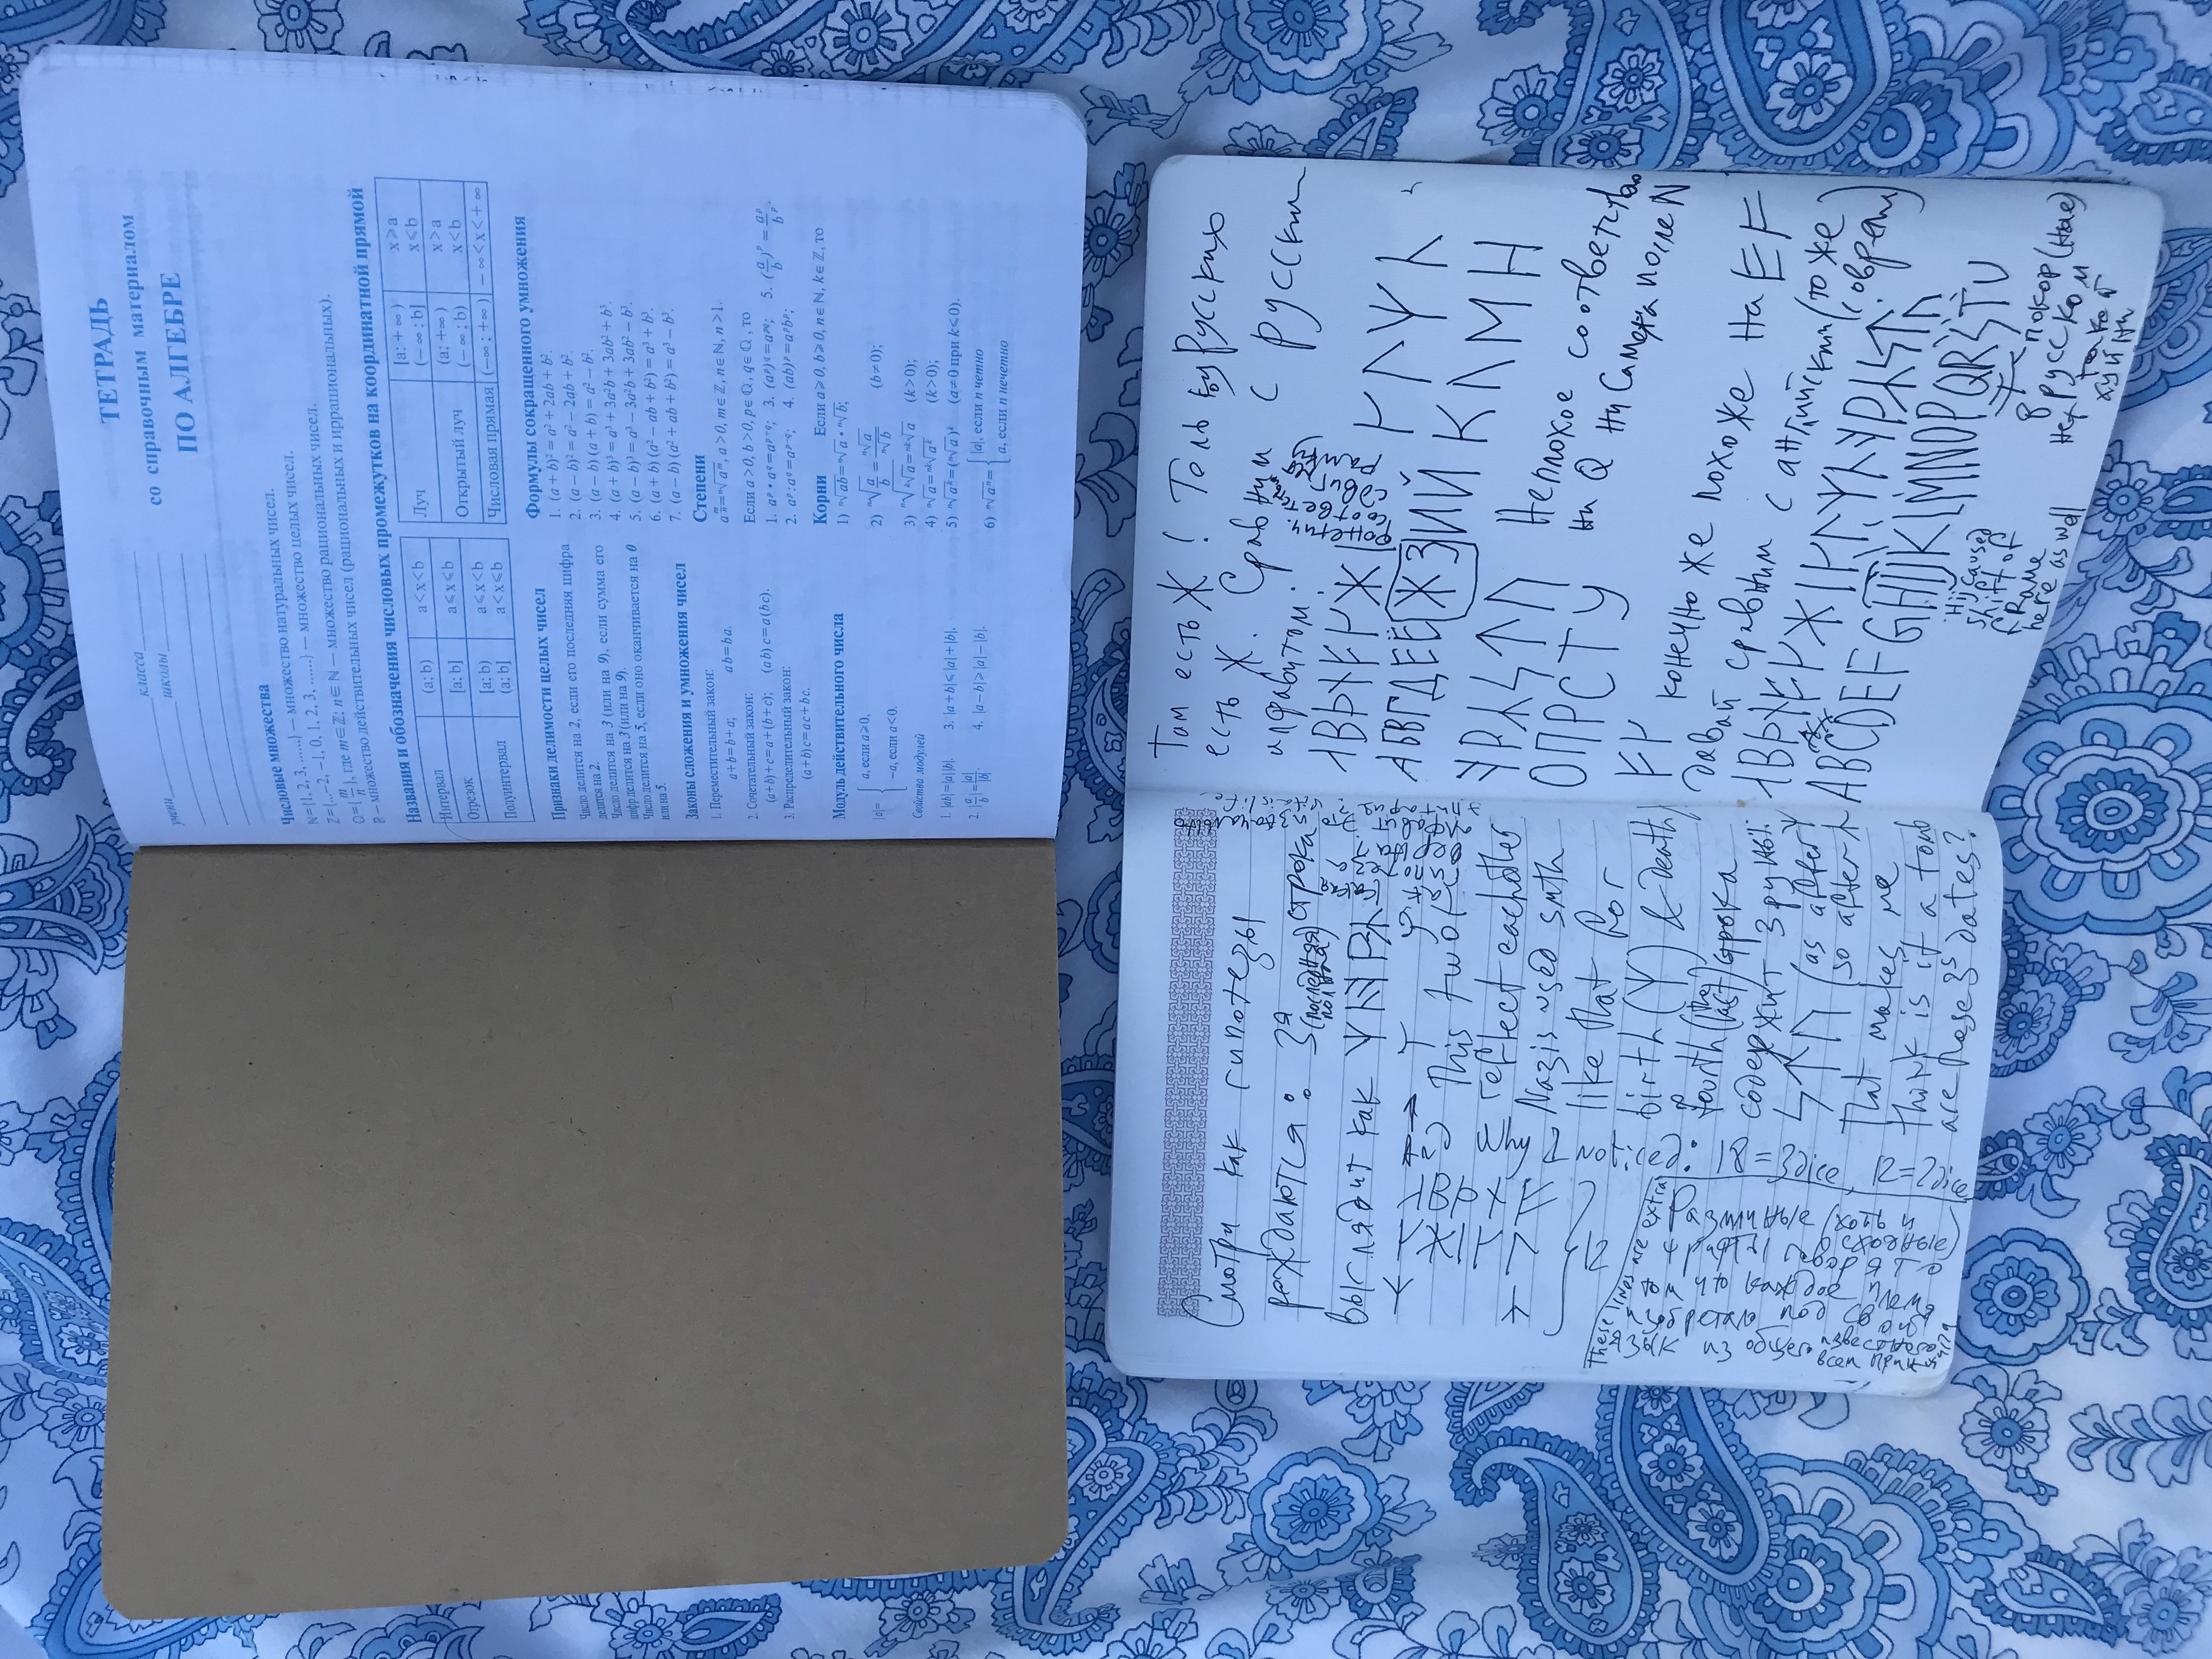 ТЕТРАДЬ
со справочным материалом
ПО АЛГЕБРЕ
учени класса
школы
Числовые множества
ℕ={1, 2, 3, ......} — множество натуральных чисел.
ℤ={...−2, −1, 0, 1, 2, 3, ......} — множество целых чисел.
ℚ={m/n}, где m∈ℤ; n∈ℕ — множество рациональных чисел.
ℝ — множество действительных чисел (рациональных и иррациональных).
Названия и обозначения числовых промежутков на координатной прямой
Интервал (a; b) a<x<b
Отрезок [a; b] a⩽x⩽b
Полуинтервал [a; b) a⩽x<b
(a; b] a<x⩽b
Луч [a; +∞) x⩾a
(−∞; b] x⩽b
Открытый луч (a; +∞) x>a
(−∞; b) x<b
Числовая прямая (−∞; +∞) −∞<x<+∞
Признаки делимости целых чисел
Число делится на 2, если его последняя цифра
делится на 2.
Число делится на 3 (или на 9), если сумма его
цифр делится на 3 (или на 9).
Число делится на 5, если оно оканчивается на 0
или на 5.
Законы сложения и умножения чисел
1. Переместительный закон:
a+b=b+a; ab=ba.
2. Сочетательный закон:
(a+b)+c=a+(b+c); (ab)c=a(bc).
3. Распределительный закон:
(a+b)c=ac+bc.
Модуль действительного числа
|a|= { a, если a⩾0,
−a, если a<0.
Свойства модулей
1. |ab|=|a||b|. 3. |a+b|⩽|a|+|b|.
2. |a/b|=|a|/|b|. 4. |a−b|⩾|a|−|b|.
Формулы сокращенного умножения
1. (a+b)²=a²+2ab+b².
2. (a−b)²=a²−2ab+b².
3. (a−b)(a+b)=a²−b².
4. (a+b)³=a³+3a²b+3ab²+b³.
5. (a−b)³=a³−3a²b+3ab²−b³.
6. (a+b)(a²−ab+b²)=a³+b³.
7. (a−b)(a²+ab+b²)=a³−b³.
Степени
a^(m/n)=ⁿ√a^m, a>0, m∈ℤ, n∈ℕ, n>1.
Если a>0, b>0, p∈ℚ, q∈ℚ, то
1. a^p•a^q=a^(p+q); 3. (a^p)^q=a^(pq); 5. (a/b)^p=a^p/b^p.
2. a^p:a^q=a^(p−q); 4. (ab)^p=a^p b^p;
Корни Если a⩾0, b⩾0, n∈ℕ, k∈ℤ, то
1) ⁿ√ab=ⁿ√a•ⁿ√b;
2) ⁿ√(a/b)=ⁿ√a/ⁿ√b (b≠0);
3) ⁿ√(ᵏ√a)=ⁿᵏ√a (k>0);
4) ⁿ√a=ⁿᵏ√a^k (k>0);
5) ⁿ√a^k=(ⁿ√a)^k (a≠0 при k⩽0).
6) ⁿ√aⁿ= { |a|, если n четно
a, если n нечетно
Смотри как гипотезы
реждаются: 3я
(последняя) строка
выглядит как ᛉ
This two
reflect eachother
Nazis used smth
like that for
birth (ᛉ) & death
fourth (the last) строка
содержит 3 руны:
ᛋᛏᚢ (as after ᛉ
so after ᛣ
That makes me
think is it a tomb
are those 3s dates?
какая
гипотеза
Why 2
I noticed: 18 = 3 dice, 12 = 2 dice
These lines are extra
Различные (хоть и
том что каждое племя
изобретало под свой
язык из общеизвестного
Там есть Ж! Только у Русских
есть Ж. Сравним с русским
алфавитом.
фонетич.
сдвиг
рамку
АБВГДЕЁЖЗИЙ КЛМН
ОПРСТУ
Неплохое соответствие
ни Q ни Самеха после N
конечно же похоже на EF
давай сравним с английским (тоже
соврем)
ABCDEFGHIJKLMNOPQRSTU
Hij caused
shift of
frame
here as well
в русском
нет такой
хуйни